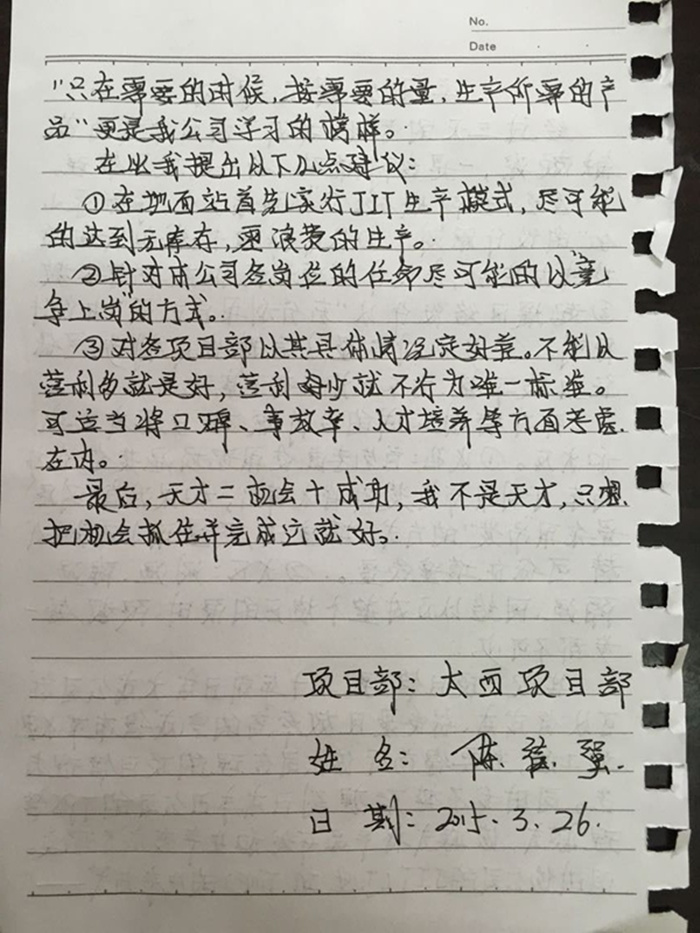 No.
Date
"只在需要的时候,按需要的量,生产所需的产
品"更是我公司学习的榜样。
在此我提出以下几点建议:
①在地面站首先实行JIT生产模式,尽可能
的达到无库存,无浪费的生产。
②针对本公司各岗位的任命尽可能的以"竞
争上岗"的方式。
③对各项目部以其具体情况定好差。不能以
营利多就是好,营利少就不行为唯一标准。
可适当将口碑、事故率、人才培养等方面考虑
在内。
最后,天才=机会+成功,我不是天才,只想
把机会抓住并完成它就好。
项目部:大西项目部
姓名:陈 强
日期:2015.3.26.